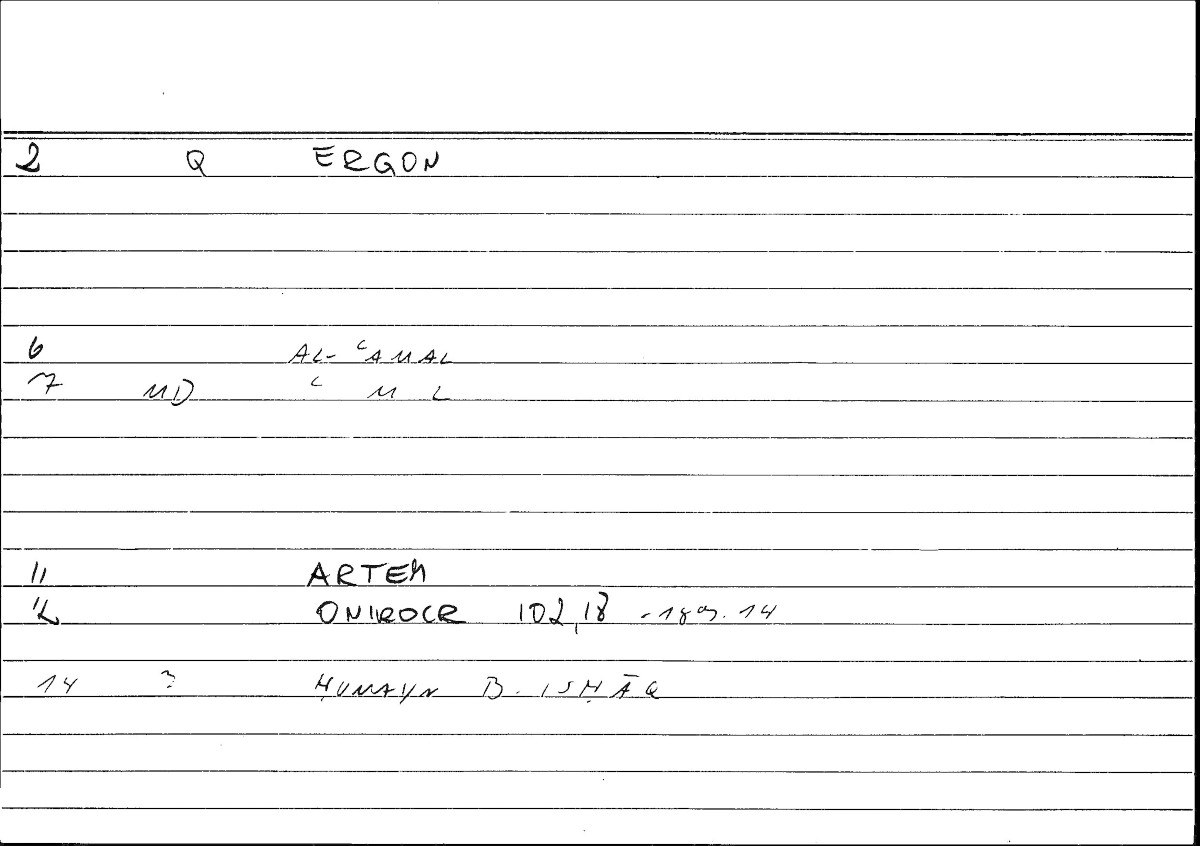 2 Q ERGON
6 AL-ʿAMAL
7 MD ʿ M L
11 ARTEM
12 ONIROCR 102,18 - 189.14
14 ? ḤUNAYN B. ISḤĀQ